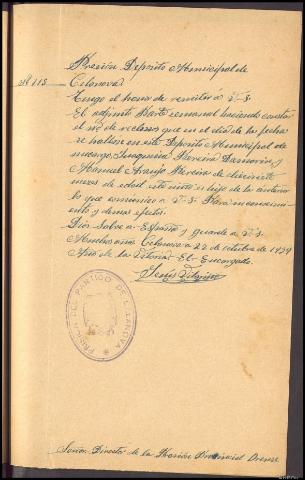 Prisión Depósito Municipal de
Nº 113. Celanova
Tengo el honor de remitir á V.S.
El adjunto Parte semanal haciendo constar
el nº de reclusos que en el dia de la fecha
se hallan en este Depósito Municipal de
mi cargo, Joaquina Pereira
Manuel Araujo Pereira de diecisiete
meses de edad este niño es hijo de la anterior
lo que comunico a V.S. Para su conocimiento
y demas efectos.
Dios salve a España y guarde a V.S.
Muchos años Celanova a 22 de octubre de 1939
Año de la Victoria El Encargado
PRISIÓN DEL PARTIDO DE CELANOVA
Señor Director de la Prisión Provincial Orense